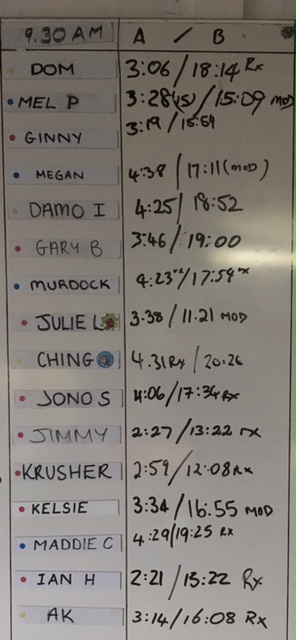 9.30 AM A / B
DOM 3:06/18:14 Rx
MEL P 3:28(s)/15:09 MOD
GINNY 3:19/15:59
MEGAN 4:38/17:11(MOD)
DAMO I 4:25/18:52
GARY B 3:46/19:00
MURDOCK 4:23rx/17:59rx
JULIE L 3:38/11.21 MOD
CHING 4.31Rx/20:26
JONO S 4:06/17:34Rx
JIMMY 2:27/13:22 rx
KRUSHER 2:59/12:08Rx
KELSIE 3:34/16:55 MOD
MADDIE C 4:29/19:25 Rx
IAN H 2:21/15:22 Rx
AK 3:14/16:08 Rx